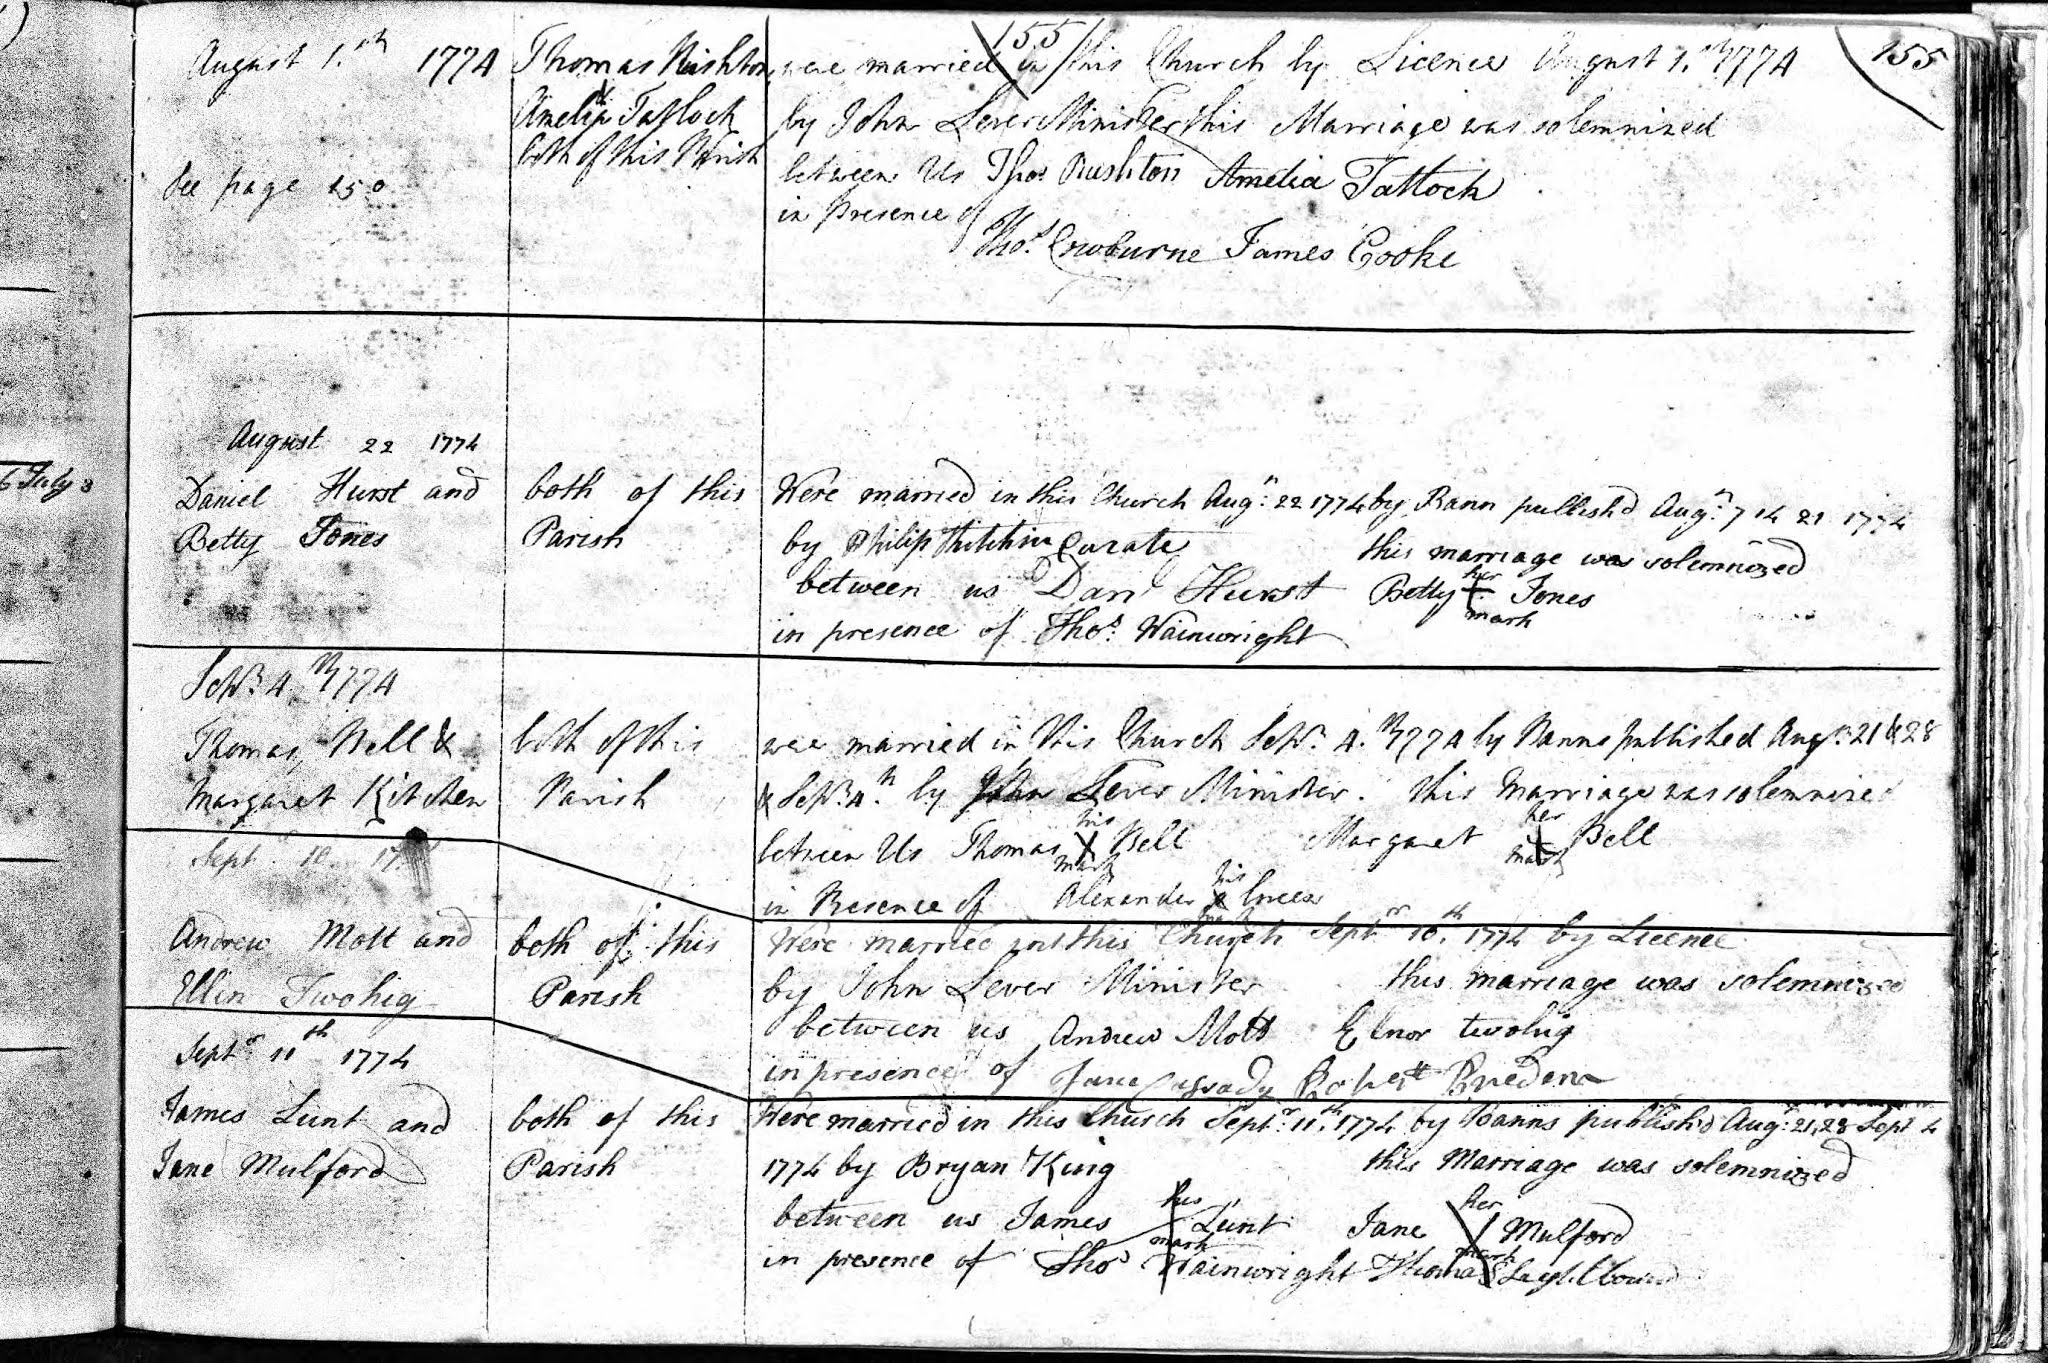 155
155
August 1.st 1774
Thomas Rishton
were married in this Church by Licence August 1.st 1774
& Amelia Tatlock
by John Lever Minister this Marriage was solemnized
both of this Parish
see page 150
between Us Thos. Rushton Amelia Tatlock
in presence of
Thos. Cowburne James Cooke
August 22 1774
6 July 3
Daniel Hurst and
both of this
Were married in this Church Augn. 22 1774 by Bann publish'd Augn. 7 14 21 1774
Betty Jones
Parish
by Philip Curate this marriage was solemnized
between us Danl Hurst Betty her + mark Jones
in presence of Thos. Wainwright
Septr. 4.th 1774
Thomas Bell &
both of this
were married in this Church Septr. 4.th 1774 by Banns published Augn. 21 & 28
Margaret Kitchen
Parish
& Septr. 4.th by John Lever Minister. this Marriage was solemnized
between Us Thomas his X mark Bell Margaret her X mark Bell
in Presence of Alexander his x mark
Sept 10 17
Andrew Mott and
both of this
Were married in this Church Septr 10.th 1774 by Licence
Ellin Twohig
Parish
by John Lever Minister this marriage was solemnized
between us Andrew Mott Elnor twohig
in presence of Jane Cassady Robert
Septr 11th 1774
James Lunt and
both of this
Were married in this Church Septr. 11.th 1774 by Banns publish'd Augn. 21, 28 Sept 4
Jane Mulford
Parish
1774 by Bryan King this Marriage was solemnized
between us James his X mark Lunt Jane her X mark Mulford
in presence of Thos Wainwright Thomas